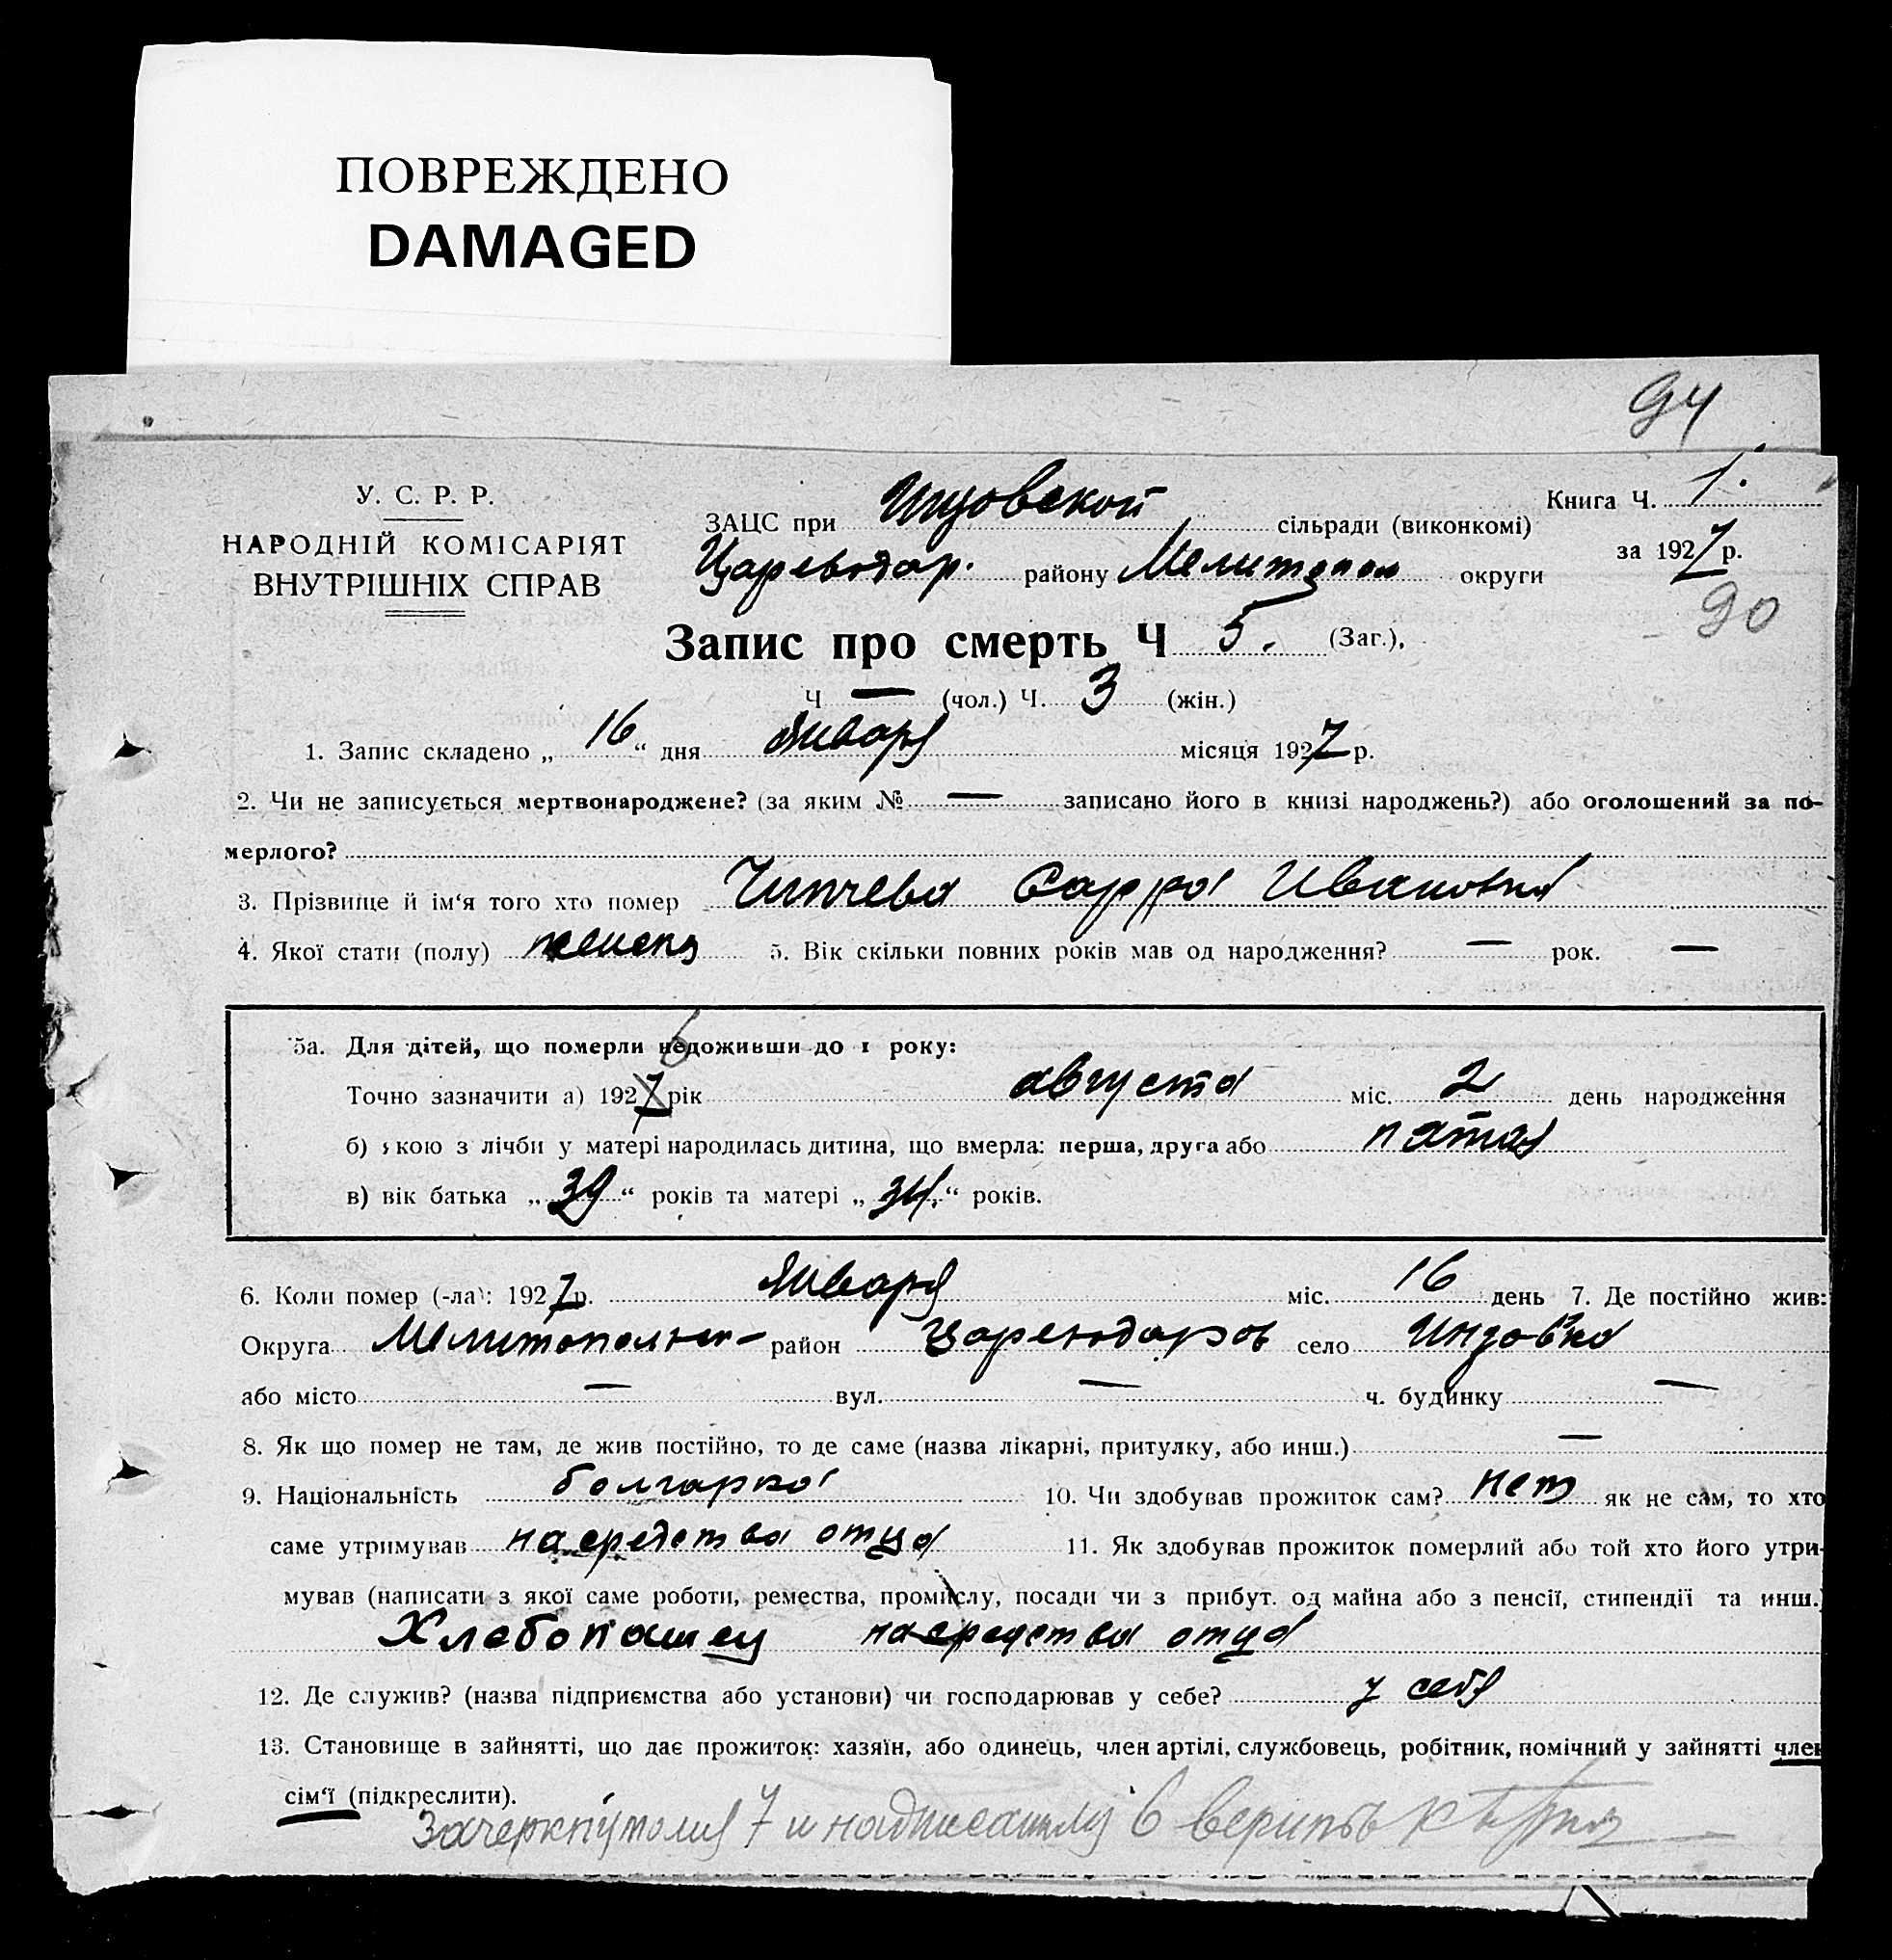 ПОВРЕЖДЕНО
DAMAGED
94
У. С. Р. Р.
НАРОДНІЙ КОМІСАРІЯТ
ВНУТРІШНІХ СПРАВ
Книга Ч. 1.
ЗАЦС при Инзовской сільради (виконкомі)
за 1927 р.
Цареводар. району Мелитопол округи
90
Запис про смерть Ч 5. (Заг.),
Ч — (чол.) Ч. 3 (жін.)
1. Запис складено „ 16 “ дня Января місяця 1927 р.
2. Чи не записується мертвонароджене? (за яким № — записано його в книзі народжень?) або оголошений за по-
мерлого?
3. Прізвище й ім‘я того хто помер Чипчева Сарра Ивановна
4. Якої стати (полу) женск 5. Вік скільки повних років мав од народження? — рок. —
5а. Для дітей, що померли недоживши до 1 року:
6
Точно зазначити а) 1927 рік августа міс. 2 день народження
б) якою з лічби у матері народилась дитина, що вмерла: перша, друга або пятая
в) вік батька „ 39 “ років та матері „ 34. “ років.
6. Коли помер (-ла): 1927 р. Января міс. 16 день 7. Де постійно жив:
Округа Мелитопольск- район Цареводаров село Инзовка
або місто — вул. — ч. будинку —
8. Як що помер не там, де жив постійно, то де саме (назва лікарні, притулку, або инш.) —
9. Національність болгарка 10. Чи здобував прожиток сам? нет як не сам, то хто
саме утримував на средства отца 11. Як здобував прожиток померлий або той хто його утри-
мував (написати з якої саме роботи, ремества, промислу, посади чи з прибут. од майна або з пенсії, стипендії та инш.)
Хлебопашец на средства отца
12. Де служив? (назва підприємства або установи) чи господарював у себе? у себя
13. Становище в зайнятті, що дає прожиток: хазяїн, або одинець, член артілі, службовець, робітник, помічний у зайнятті член
сім‘ї (підкреслити).
7 и 6